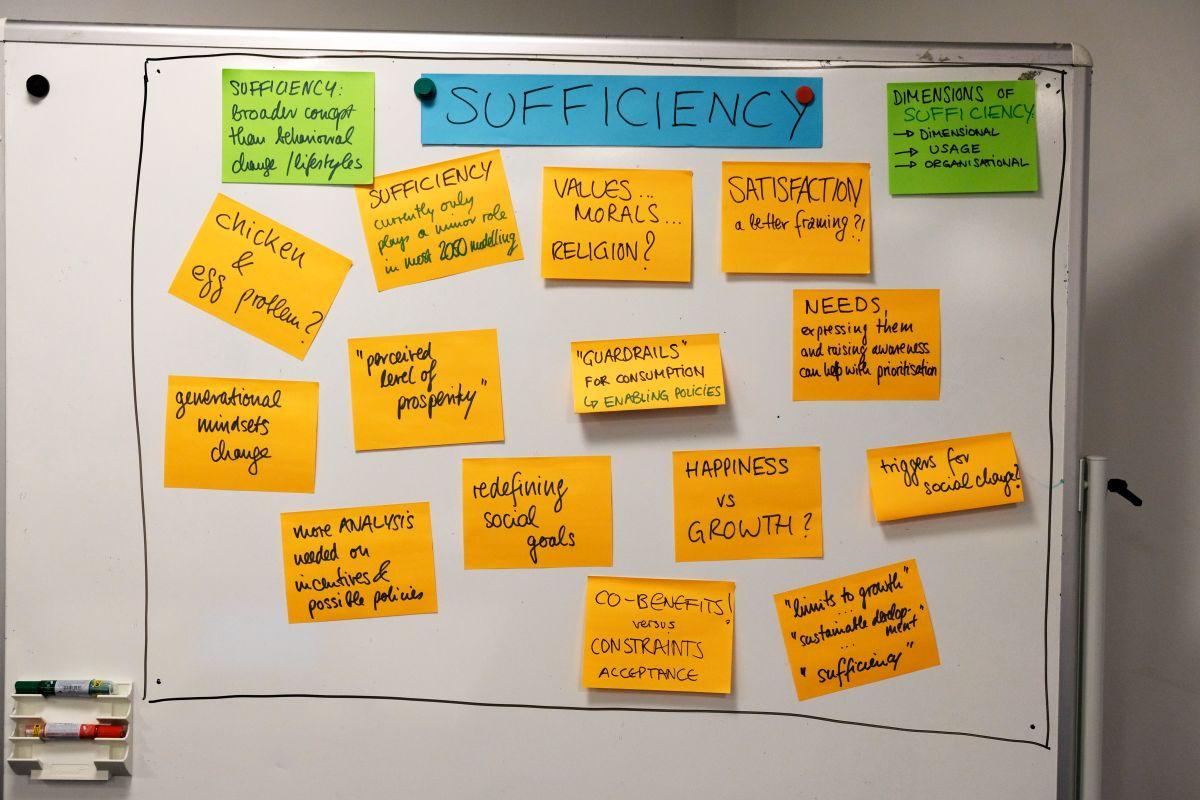 SUFFICIENCY:
broader concept
than behavioural
change / lifestyles
SUFFICIENCY
DIMENSIONS OF
SUFFICIENCY:
→ DIMENSIONAL
→ USAGE
→ ORGANISATIONAL
chicken
&
egg problem?
SUFFICIENCY
currently only
plays a minor role
in most 2050 modelling
VALUES...
MORALS...
RELIGION?
SATISFACTION
a better framing?!
NEEDS,
expressing them
and raising awareness
can help with prioritisation
"perceived
level of
prosperity"
"GUARDRAILS"
FOR CONSUMPTION
↳ ENABLING POLICIES
generational
mindsets
change
redefining
social
goals
HAPPINESS
vs
GROWTH?
triggers for
social change?
more ANALYSIS
needed on
incentives &
possible policies
CO-BENEFITS!
versus
CONSTRAINTS
ACCEPTANCE
"limits to growth"
...
"sustainable develop-
ment"
...
"sufficiency"